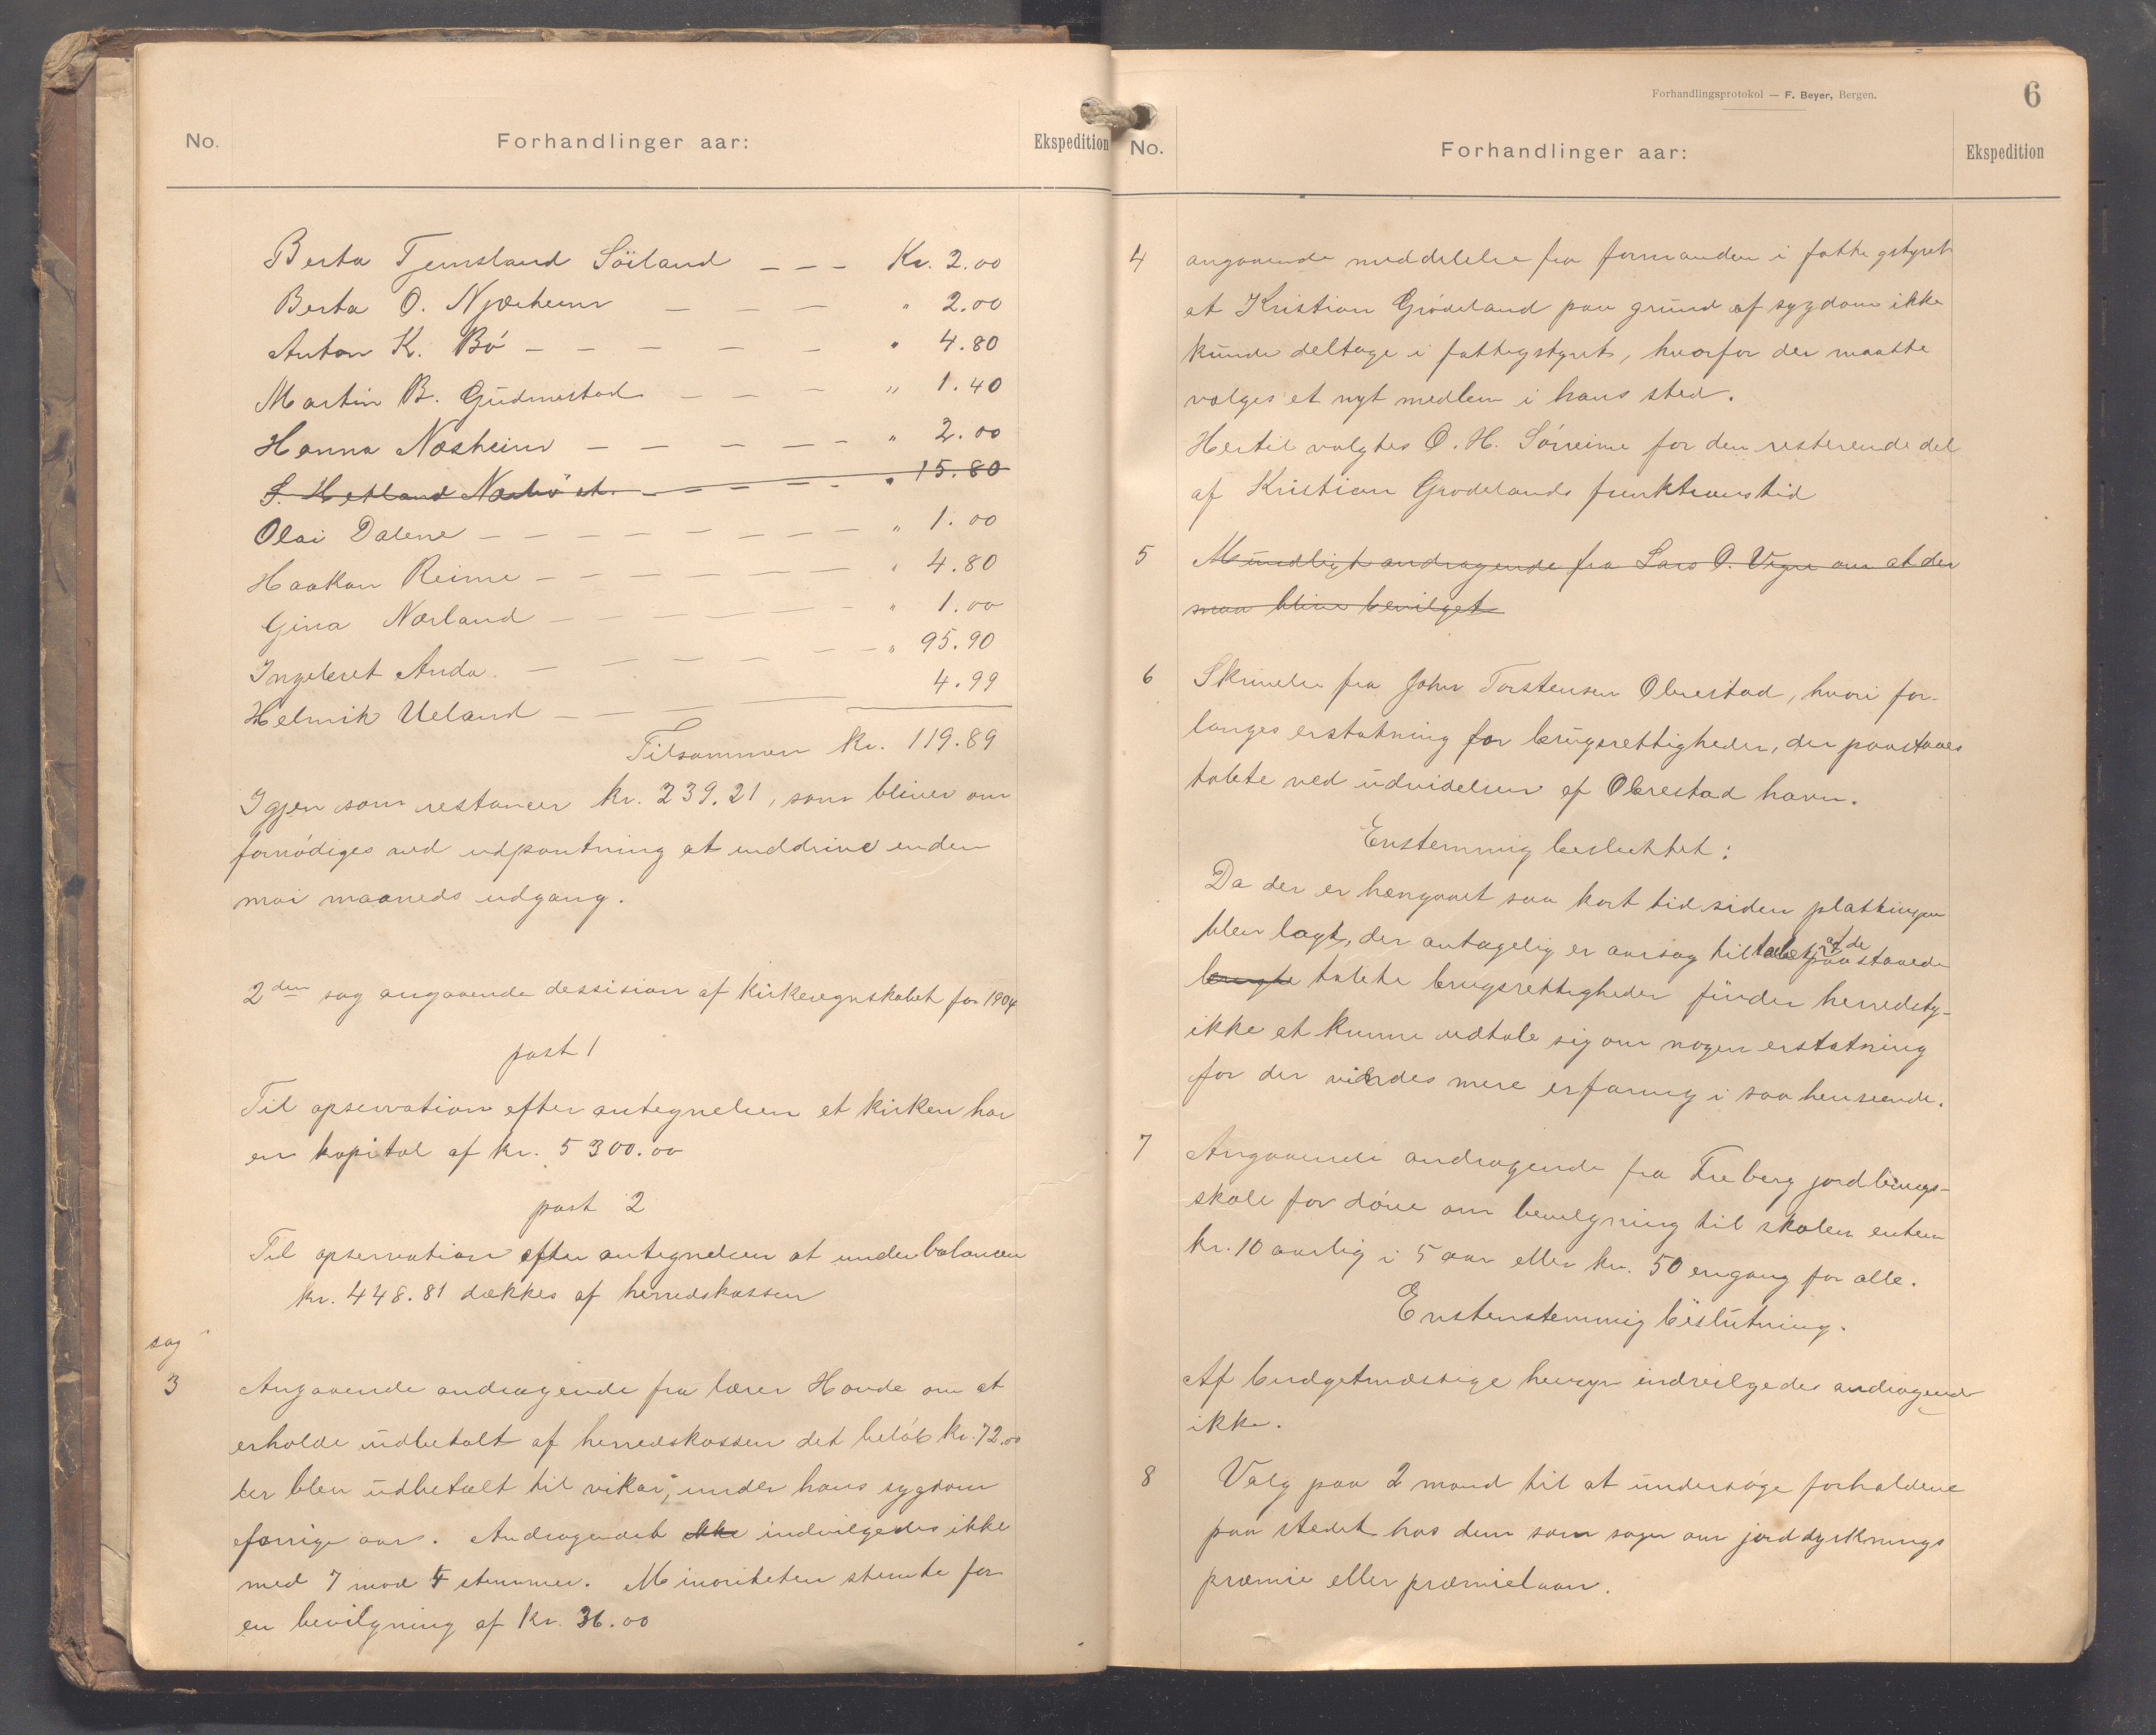 No.
Forhandlinger aar:
Ekspedition
Berta Tjemsland Söiland – – – Kr. 2.00
Berta O. Njærheim – – – " 2.00
Anton K. Bö – – – – – – " 4.80
Martin B. Gudmestad – – – " 1.40
Hanna Næsheim – – – – – " 2.00
S. Hetland Nærbö st. – – – – – " 15.80
Olai Dalene – – – – – – – – " 1.00
Haakon Reime – – – – – – – " 4.80
Gina Nærland – – – – – – – " 1.00
Ingeleret Anda – – – – – – – " 95.90
Helmik Ueland – – – – – 4.99
Tilsammen kr. 119.89
Igjen som restancer kr. 239.21, som bliver om
fornödiges ved udpantning at inddrive inden
mai maaneds udgang.
2den sag angaaende dessision af kirkeregnskabet for 1904
post 1
Til opservation efter antegnelsen at kirken har
en kapital af kr. 5300.00
post 2
Til opservation efter antegnelsen at underbalancen
kr. 448.81 dækkes af herredskassen
sag
3 Angaaende andragende fra lærer Hovde om at
erholde udbetalt af herredskassen det belöb kr. 72.00
der blev udbetalt til vikar, under hans sygdom
forrige aar. Andragendet ikke indvilgedes ikke
med 7 mod 4 stemmer. Minoriteten stemte for
en bevilgning af Kr. 36.00
Forhandlingsprotokol — F. Beyer, Bergen.
6
No.
Forhandlinger aar:
Ekspedition
4 angaaende meddelelse fra formanden i fattigstyret
at Kristian Grödeland paa grund af sygdom ikke
kunde deltage i fattigstyret, hvorfor der maatte
vælges et nyt medlem i hans sted.
Hertil valgtes O. H. Sörreime for den resterende del
af Kristian Grödelands funktionstid
5 Mundligt andragende fra Lars O. Vigre om at der
maa blive bevilget
6 Skrivelse fra John Torstensen Obrestad, hvori for-
langes erstatning for brugsrettigheder, der paastaaes
tabte ved udvidelsen af Obrestad havn.
Enstemmig besluttet:
Da der er hengaaet saa kort tid siden plattingen
blev lagt, der antagelig er aarsag til tabet af de paastaaede
brugte tabte brugsrettigheder finder herredsty-
ikke at kunne udtale sig om nogen erstatning
før der vindes mere erfaring i saa henseende.
7 Angaaende andragende fra Treberg jordbrugs-
skole for döve om bevilgning til skolen enten
kr. 10 aarlig i 5 aar eller kr. 50 engang for alle.
Enstenstemmig beslutning.
Af budgetmæssige hensyn indvilgedes andragende
ikke.
8 Valg paa 2 mand til at undersöge forholdene
paa stedet hos dem som söger om jorddyrknings
præmie eller præmielaan.